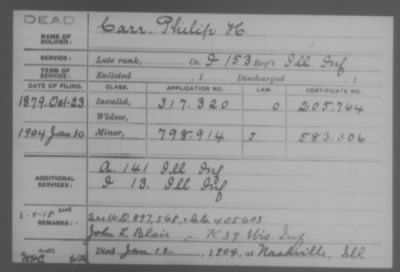 DEAD
NAME OF SOLDIER: Carr, Philip H
SERVICE: Late rank, Co. I 153 Reg't Ill Inf
TERM OF SERVICE: Enlisted , 1 Discharged , 1
DATE OF FILING. CLASS. APPLICATION NO. LAW. CERTIFICATE NO.
1879, Oct-23 Invalid, 317.320 0 205.764
Widow,
1904 Jan 30 Minor, 798.914 583.306
ADDITIONAL SERVICES: A. 141 Ill Inf
I 13. Ill Inf
REMARKS: W.O. 897,568,
John L. Blair - K 39 Wis Inf
Died Jan 12, 1904, at Nashville, Ill